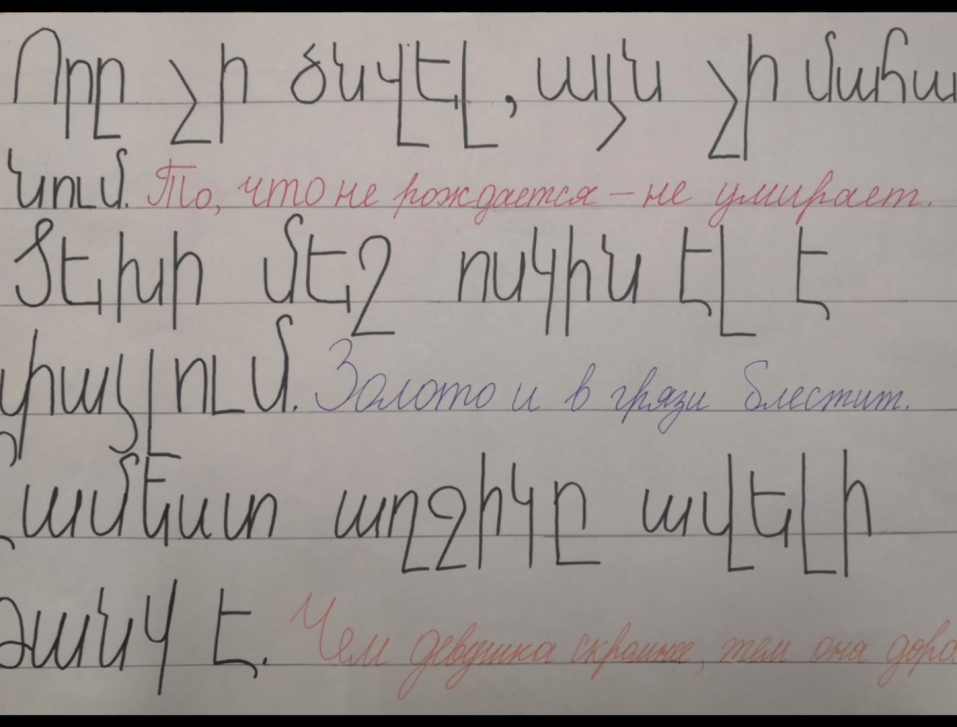 Որը չի ծնվել, այն չի մահա
նում. То, что не рождается – не умирает.
Ցեխի մեջ ոսկին էլ է
փայլում. Золото и в грязи блестит.
Համեստ աղջիկը ավելի
թանկ է. Чем девушка скромнее, тем она доро